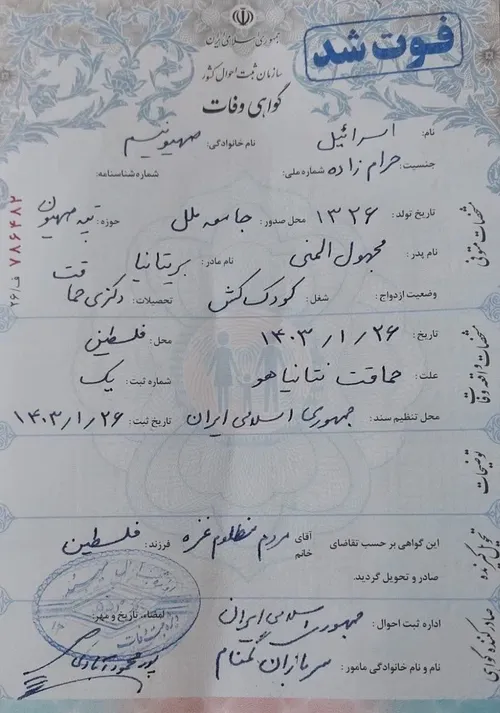 جمهوری اسلامی ایران
سازمان ثبت احوال کشور
گواهی وفات
فوت شد
نام: اسرائیل نام خانوادگی: صهیونیسم
جنسیت: حرام زاده شماره ملی: شماره شناسنامه:
تاریخ تولد: ۱۳۲۶ محل صدور: جامعه ملل حوزه: تپه صهیون
نام پدر: مجهول المنی نام مادر: بریتانیا
وضعیت ازدواج: شغل: کودک کش تحصیلات: دکتری حماقت
تاریخ: ۱۴۰۳/۱/۲۶ محل: فلسطین
علت: حماقت نتانیاهو شماره ثبت: یک
محل تنظیم سند: جمهوری اسلامی ایران تاریخ ثبت: ۱۴۰۳/۱/۲۶
این گواهی بر حسب تقاضای آقای خانم مردم مظلوم غزه فرزند: فلسطین
صادر و تحویل گردید.
اداره ثبت احوال: جمهوری اسلامی ایران امضاء، تاریخ و مهر:
نام و نام خانوادگی مامور: سربازان گمنام
مشخصات متوفی
مشخصات واقعه وفات
توضیحات
تحویل گیرنده
صادر کننده گواهی
۷۸۶۴۸۲
ف/۲۶